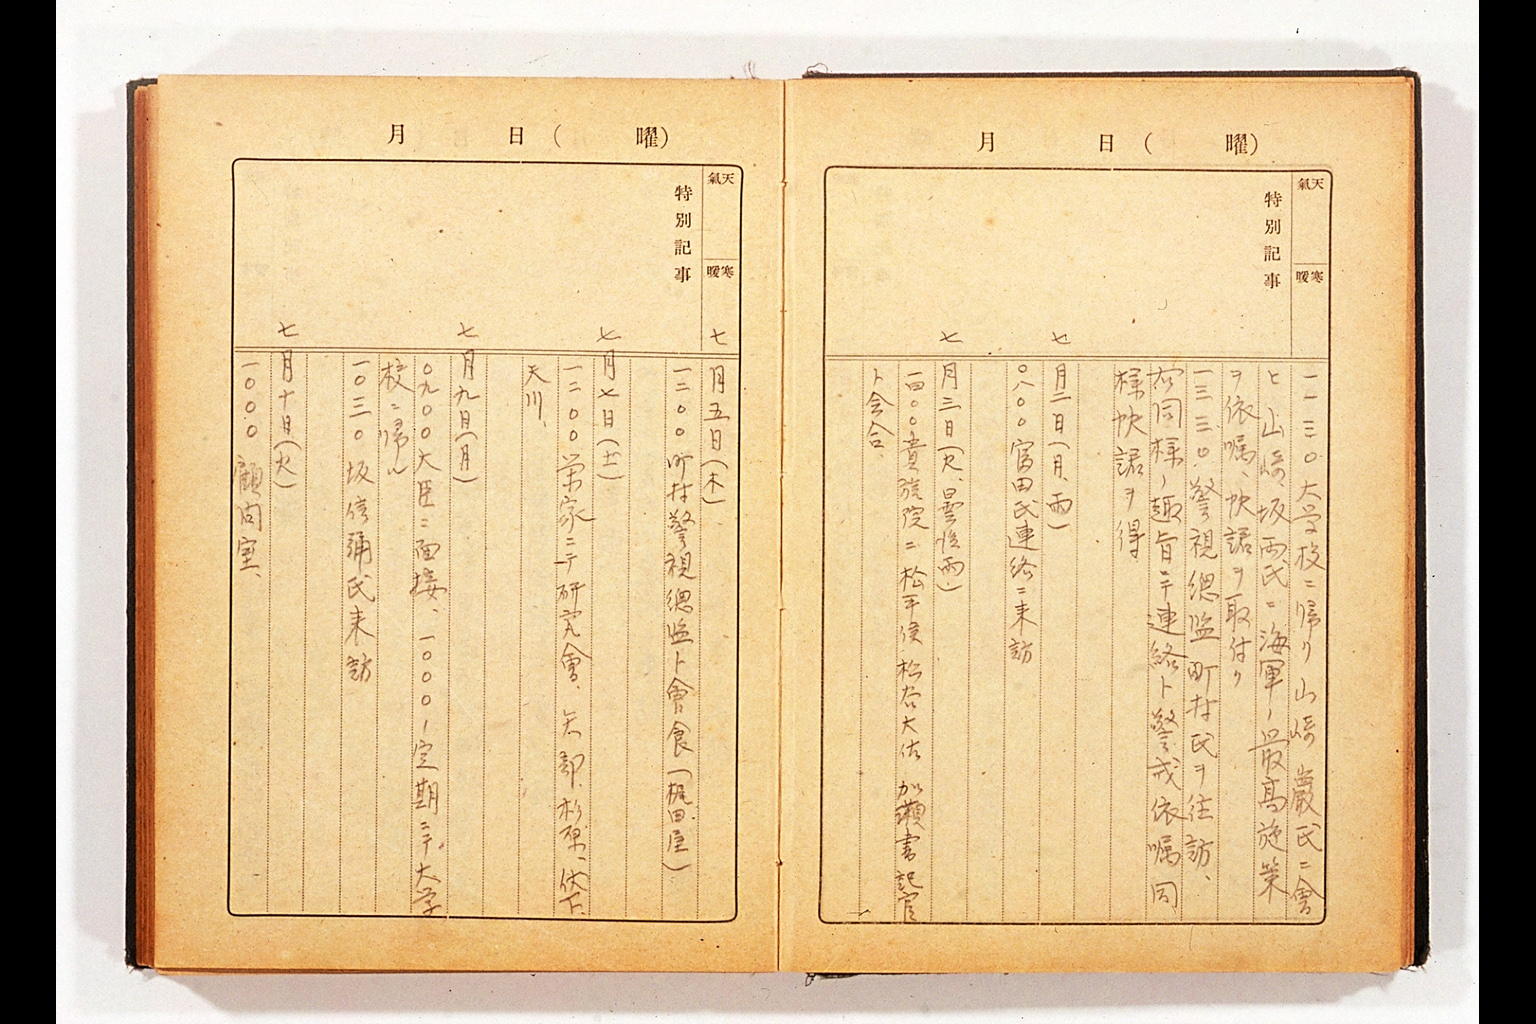 月 日( 曜)
天氣
寒暖
特別記事
一一三〇大学校ニ帰リ山崎巌氏ニ會
ヒ山崎、坂両氏ニ海軍ノ最高施策
ヲ依嘱、快諾ヲ取付ク
一三三〇、警視總監町村氏ヲ往訪、
右同様ノ趣旨ニテ連絡ト警戒依嘱同
様快諾ヲ得、
七月二日(月、雨)
〇八〇〇富田氏連絡ニ来訪
七月三日(火、曇後雨)
一四〇〇貴族院ニ松平侯 松谷大佐 加瀬書記官
ト会合、
月 日( 曜)
天氣
寒暖
特別記事
七月五日(木)
一二〇〇町村警視總監ト會食(梶田屋)
七月七日(土)
一二〇〇栄家ニテ研究會、矢部、杉原、伏下、
天川、
七月九日(月)
〇九〇〇大臣ニ面接、一〇〇〇ノ定期ニテ大学
校ニ帰ル
一〇三〇坂信彌氏来訪
七月十日(火)
一〇〇〇顧問室、